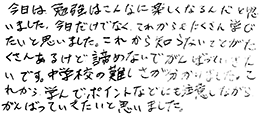 今日は、勉強はこんなに楽しくなるんだと思
いました。今日だけでなく、これからもたくさん学び
たいと思いました。これから知らないことがた
くさんあるけど諦めないでがんばっていきた
いです。中学校の難しさが分かりました。こ
れから、学んで、ポイントなどにも注意しながら
がんばっていきたいと思いました。